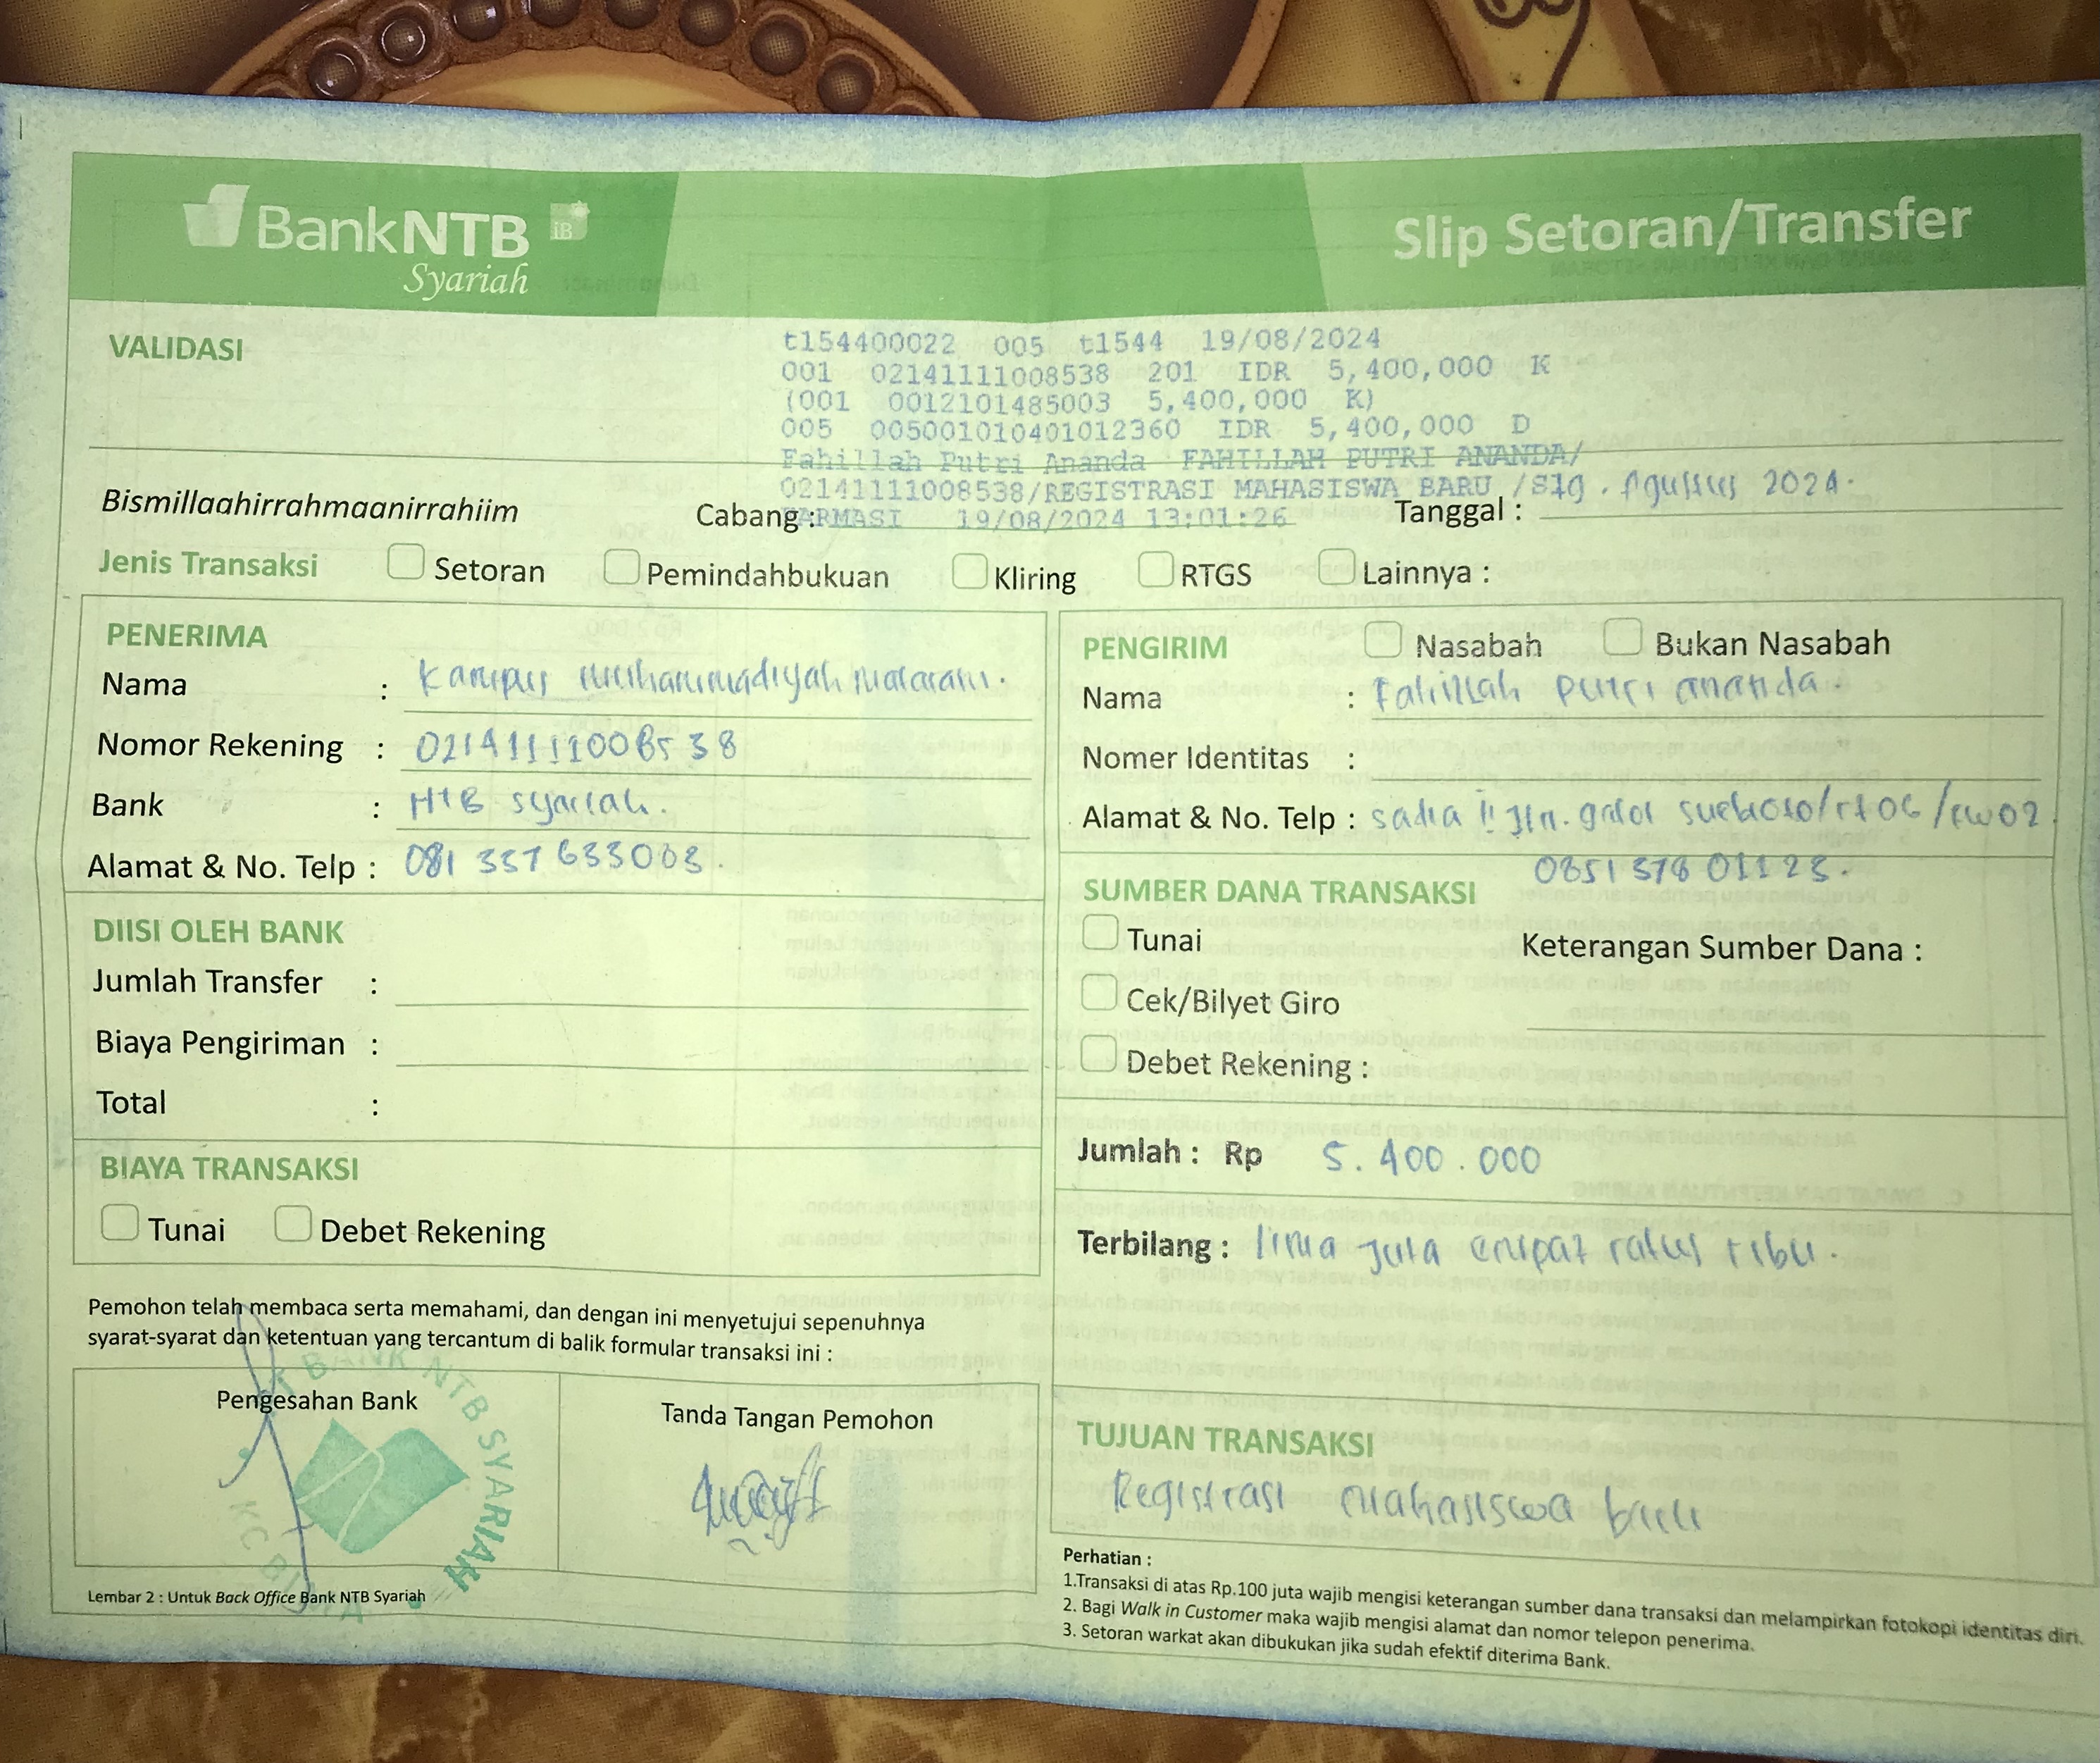 BankNTB iB
Syariah
Slip Setoran/Transfer
VALIDASI
t154400022 005 t1544 19/08/2024
001 02141111008538 201 IDR 5,400,000 K
(001 0012101485003 5,400,000 K)
005 005001010401012360 IDR 5,400,000 D
Fahillah Putri Ananda FAHILLAH PUTRI ANANDA/
02141111008538/REGISTRASI MAHASISWA BARU /S1
FARMASI 19/08/2024 13:01:26
Bismillaahirrahmaanirrahiim
Cabang :
Tanggal : 19. Agustus 2024.
Jenis Transaksi Setoran Pemindahbukuan Kliring RTGS Lainnya :
PENERIMA
Nama : Kampus Muhammadiyah Mataram.
Nomor Rekening : 02141111008538
Bank : NTB Syariah.
Alamat & No. Telp : 081 337 633003.
PENGIRIM Nasabah Bukan Nasabah
Nama : Fahillah Putri ananda.
Nomer Identitas :
Alamat & No. Telp : sadia II Jln. gatot subroto/rt06/rw02
0851 378 01123.
DIISI OLEH BANK
Jumlah Transfer :
Biaya Pengiriman :
Total :
SUMBER DANA TRANSAKSI
Tunai
Keterangan Sumber Dana :
Cek/Bilyet Giro
Debet Rekening :
BIAYA TRANSAKSI
Tunai Debet Rekening
Jumlah : Rp 5.400.000
Terbilang : lima juta empat ratus ribu.
Pemohon telah membaca serta memahami, dan dengan ini menyetujui sepenuhnya
syarat-syarat dan ketentuan yang tercantum di balik formular transaksi ini :
Pengesahan Bank
Tanda Tangan Pemohon
BANK NTB SYARIAH
KC BIMA
TUJUAN TRANSAKSI
Registrasi Mahasiswa baru
Lembar 2 : Untuk Back Office Bank NTB Syariah
Perhatian :
1.Transaksi di atas Rp.100 juta wajib mengisi keterangan sumber dana transaksi dan melampirkan fotokopi identitas diri.
2. Bagi Walk in Customer maka wajib mengisi alamat dan nomor telepon penerima.
3. Setoran warkat akan dibukukan jika sudah efektif diterima Bank.